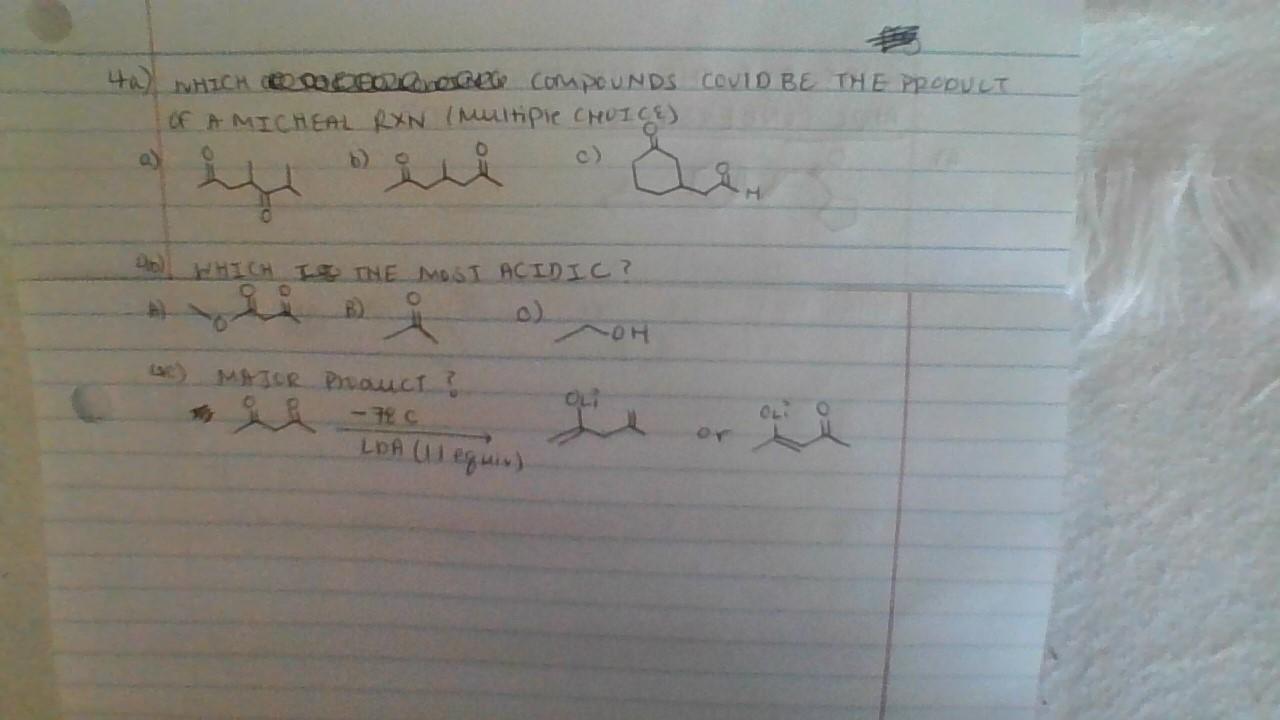 4a) WHICH COMPOUNDS COULD BE THE PRODUCT
OF A MICHEAL RXN (Multiple CHOICE)
a) O O b) O O c) O O H
4b) WHICH IS THE MOST ACIDIC?
A) O O O B) O C) OH
4c) MAJOR PRODUCT?
O O -78 C OLi or OLi O
LDA (1.1 equiv)